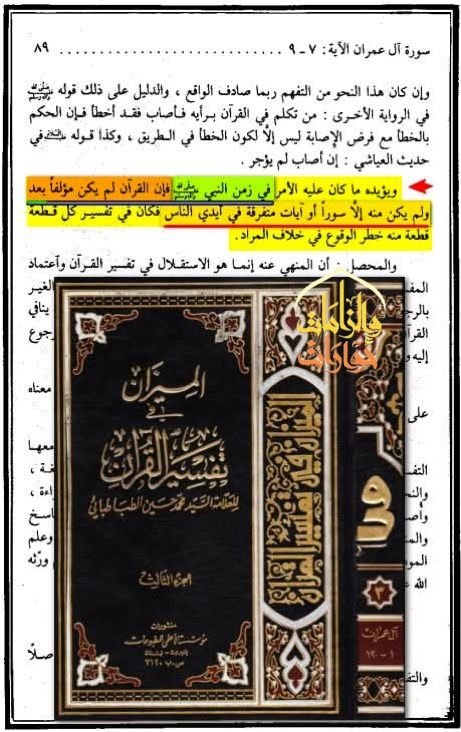 سورة آل عمران الآية: ٧ - ٩ ........................ ٨٩
وإن كان هذا النحو من التفهم ربما صادف الواقع ، والدليل على ذلك قوله ﷺ
في الرواية الأخرى : من تكلم في القرآن برأيه فأصاب فقد أخطأ فإن الحكم
بالخطأ مع فرض الإصابة ليس إلّا لكون الخطأ في الطريق ، وكذا قوله في
حديث العياشي : إن أصاب لم يؤجر .
ويؤيده ما كان عليه الأمر في زمن النبي ﷺ فإن القرآن لم يكن مؤلفاً بعد
ولم يكن منه إلّا سوراً أو آيات متفرقة في أيدي الناس فكان في تفسير كل قطعة
قطعة منه خطر الوقوع في خلاف المراد.
والمحصل : أن المنهي عنه إنما هو الاستقلال في تفسير القرآن وآعتماد
المف
الغير
بالرج
ينافي
القرآ
رجوع
إليه و
معناه
على
التفس
معها
والنح
وأص
اءة ،
والمت
ناسخ
المو
وعلم
الله ع
ورّثه
صلاً
والتفه
والزامات
حوارات
الميزان
في
تفسير القرآن
للعلامة السيد محمد حسين الطباطبائي
الجزء الثالث
منشورات
مؤسسة الأعلمي للمطبوعات
بيروت - لبنان
ص.ب ٧١٢٠
الميزان في تفسير القرآن
٣
آل عمران
١ - ١٢٠